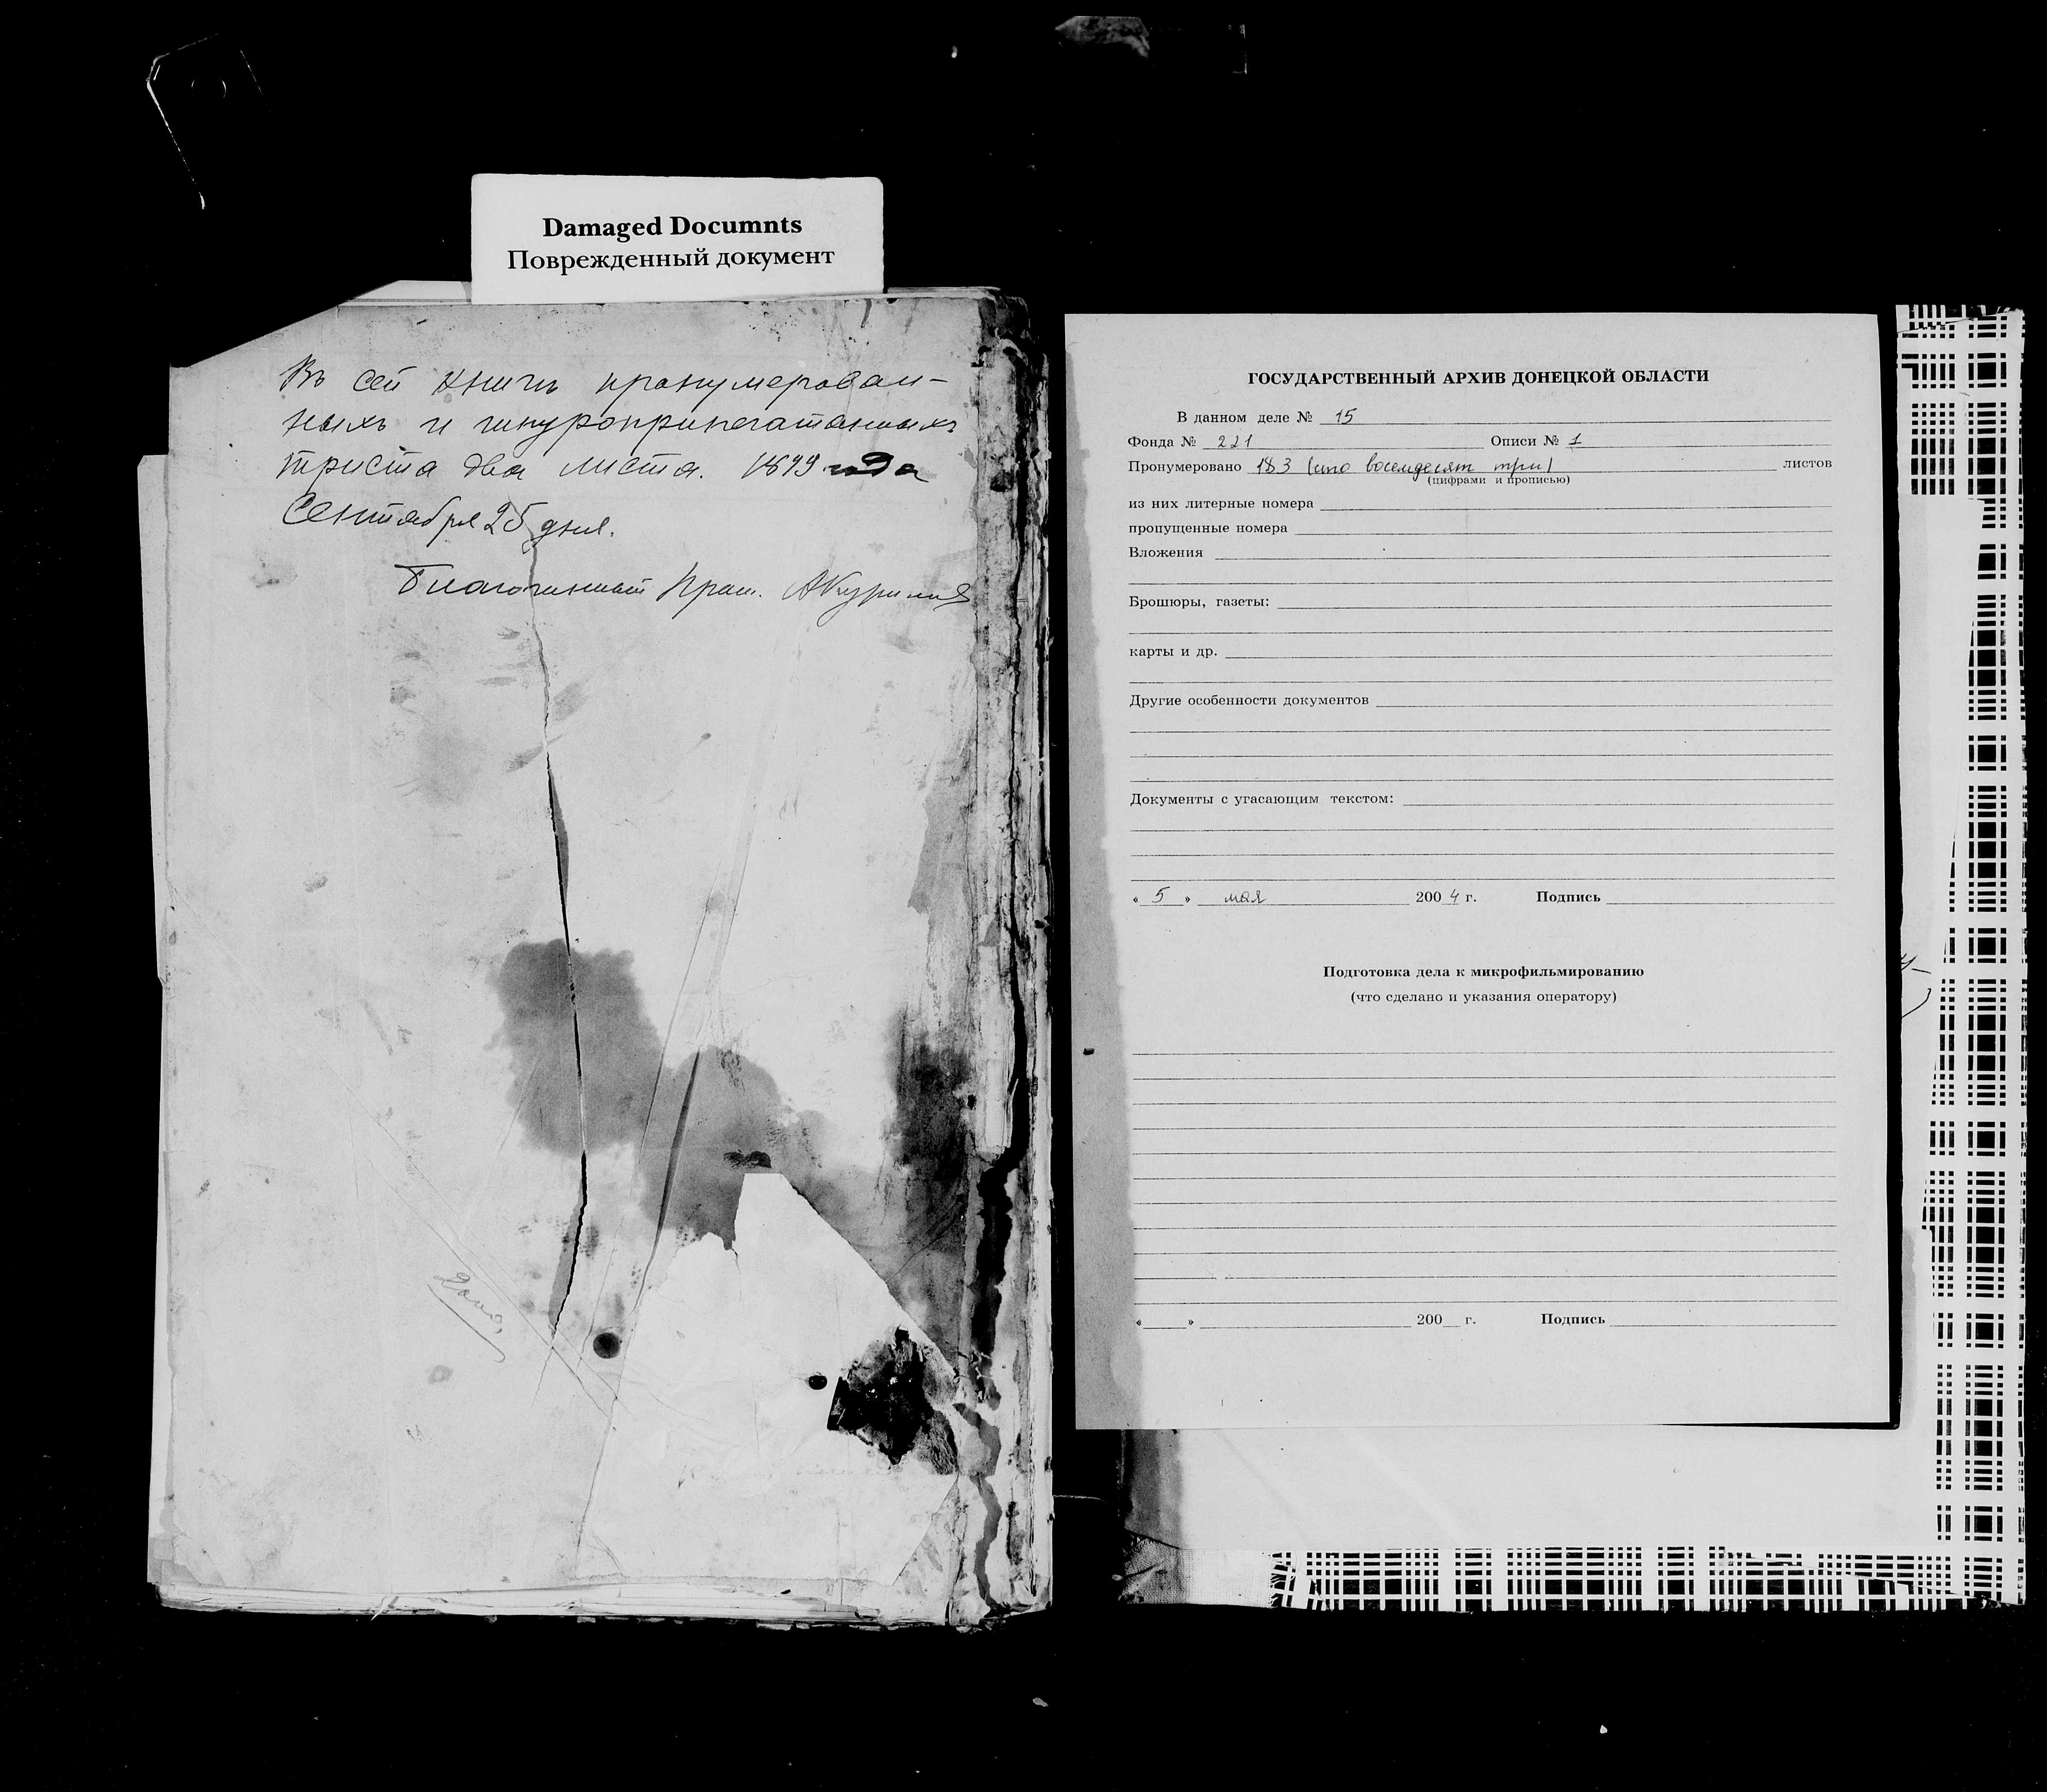 Damaged Documnts
Поврежденный документ
Въ сей книгѣ пронумерован-
ныхъ и шнуроприпечатанныхъ
триста два листа. 1899 года
Сентября 25 дня.
Благочинный Прот.
ГОСУДАРСТВЕННЫЙ АРХИВ ДОНЕЦКОЙ ОБЛАСТИ
В данном деле № 15
Фонда № 221 Описи № 1
Пронумеровано 183 (сто восемдесят три) листов
(цифрами и прописью)
из них литерные номера
пропущенные номера
Вложения
Брошюры, газеты:
карты и др.
Другие особенности документов
Документы с угасающим текстом:
« 5 » мая 2004 г. Подпись
Подготовка дела к микрофильмированию
(что сделано и указания оператору)
« » 200 г. Подпись